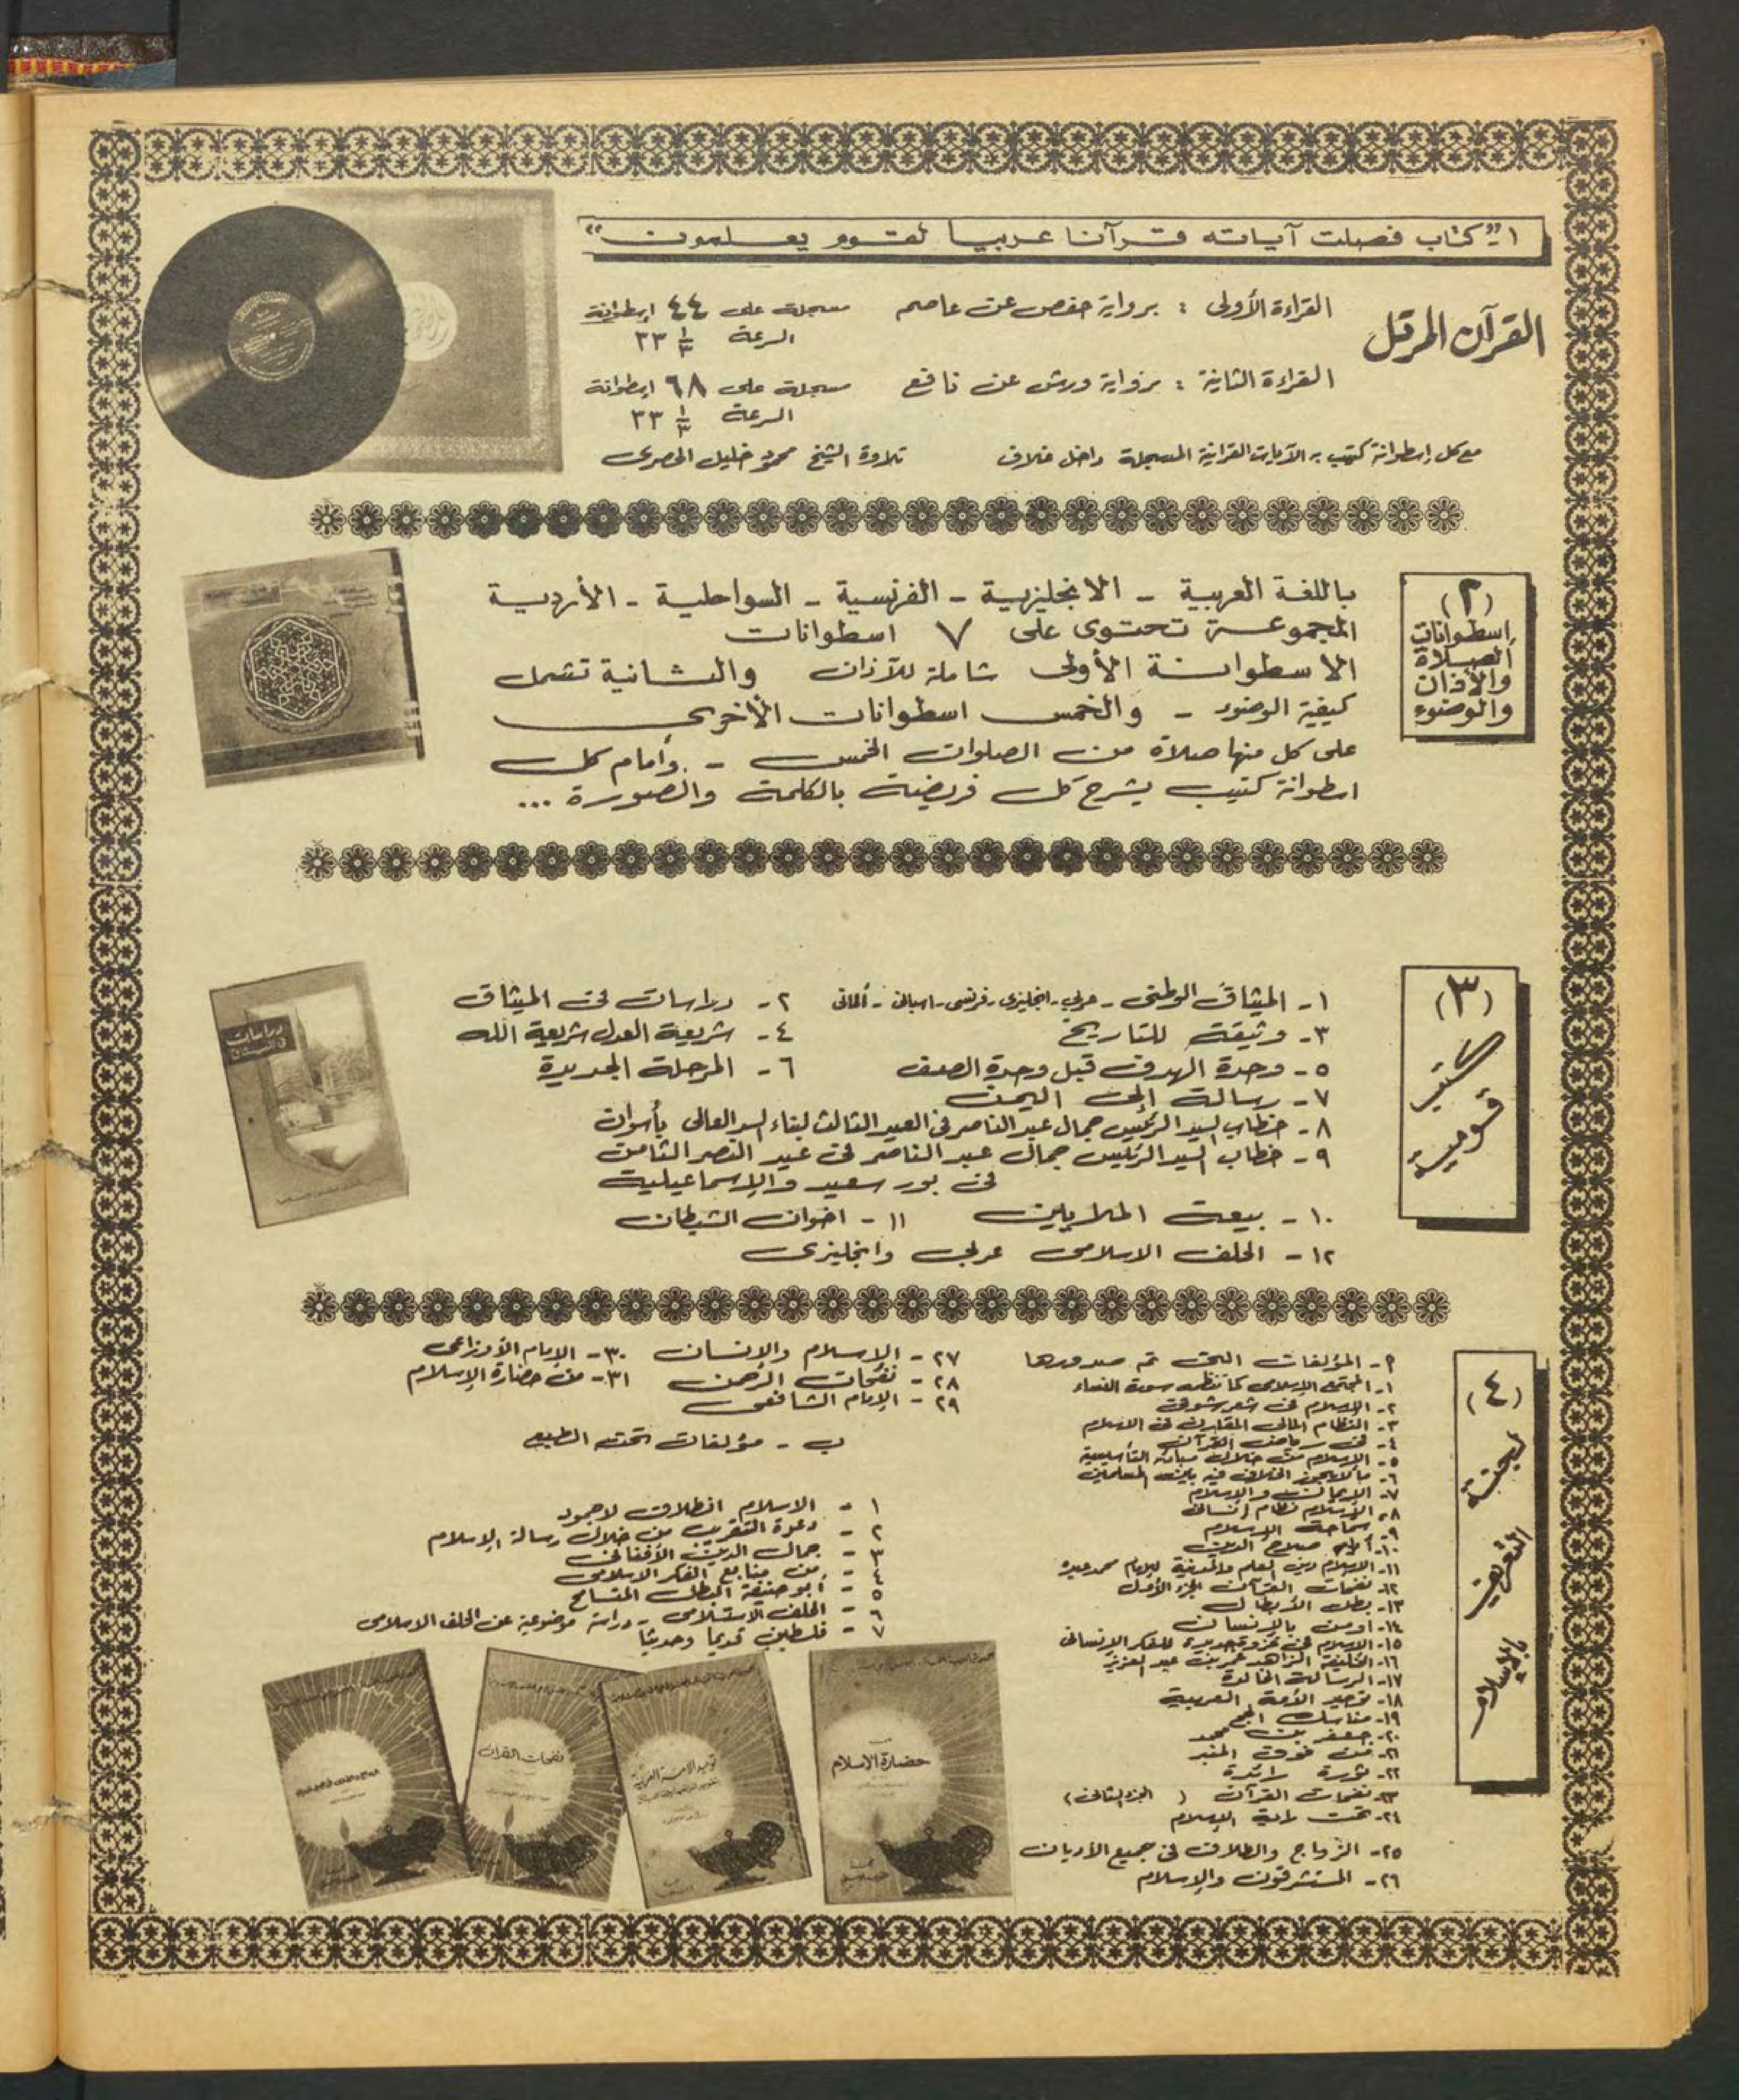 ١- "كتاب فصلت آياته قرآنا عربيا لقوم يعلمون"
القرآن المرتل
القراءة الأولى : برواية حفص عن عاصم مسجلة على ٤٤ إسطوانة
السرعة ٣٣ ١/٣
القراءة الثانية : برواية ورش عن نافع مسجلة على ٦٨ اسطوانة
السرعة ٣٣ ١/٣
مع كل إسطوانة كتيب به الآيات القرآنية المسجلة داخل غلاف تلاوة الشيخ محمود خليل الحصرى
(٢)
إسطوانات
الصلاة
والأذان
والوضوء
باللغة العربية - الانجليزية - الفرنسية - السواحلية - الأردية
المجموعة تحتوى على ٧ اسطوانات
الاسطوانة الأولى شاملة للآذان والثانية تشمل
كيفية الوضوء - والخمس اسطوانات الأخرى
على كل منها صلاة من الصلوات الخمس - وأمام كل
اسطوانة كتيب يشرح كل فريضة بالكلمة والصورة ...
(٣)
كتب
قومية
١- الميثاق الوطنى - عربى - انجليزى - فرنسى - اسبانى - ألمانى ٢- دراسات فى الميثاق
٣- وثيقة للتاريخ ٤- شريعة العدل شريعة الله
٥- وحدة الهدف قبل وحدة الصف ٦- المرحلة الجديدة
٧- رسالة إلى اليمن
٨- خطاب السيد الرئيس جمال عبد الناصر فى العيد الثالث لبناء السد العالى بأسوان
٩- خطاب السيد الرئيس جمال عبد الناصر فى عيد النصر الثامن
فى بور سعيد والإسماعيلية
١٠- بيعة الملايين ١١- اخوان الشيطان
١٢- الحلف الاسلامى عربى وانجليزى
دراسات
فى الميثاق
(٤)
لجنة
التعريف
بالإسلام
٢- المؤلفات التى تم صدورها
١- المجتمع الإسلامى كما تنظمه سورة النساء
٢- الإسلام فى شعر شوقى
٣- النظام المالى المقارن فى الاسلام
٤- فى رياض القرآن
٥- الإسلام من خلال مبادئه التأسيسية
٦- ما لا يجوز الخلاف فيه بين المسلمين
٧- الإيمان والإسلام
٨- الإسلام نظام إنسانى
٩- سماحة الإسلام
١٠- أيام صلاح الدين
١١- الإسلام دين العلم والمدنية للإمام محمد عبده
١٢- نفحات القرآن الجزء الأول
١٣- بطل الأبطال
١٤- أومن بالإنسان
١٥- الإسلام فى غزوة جديدة للفكر الإنسانى
١٦- الخليفة الزاهد عمر بن عبد العزيز
١٧- الرسالة الخالدة
١٨- توحيد الأمة العربية
١٩- مناسك الحج
٢٠- جعفر بن محمد
٢١- من فوق المنبر
٢٢- ثورة رائدة
٢٣- نفحات القرآن ( الجزء الثانى )
٢٤- تحت راية الإسلام
٢٥- الزواج والطلاق فى جميع الأديان
٢٦- المستشرقون والإسلام
٢٧- الإسلام والإنسان ٣٠- الإمام الأوزاعى
٢٨- نفحات الرحمن ٣١- من حضارة الإسلام
٢٩- الإمام الشافعى
ب - مؤلفات تحت الطبع
١ - الاسلام انطلاق لا جمود
٢ - دعوة التقريب من خلال رسالة الإسلام
٣ - جمال الدين الأفغانى
٤ - من منابع الفكر الاسلامى
٥ - أبو حنيفة البطل المتسامح
٦ - الحلف الاستسلامى - دراسة موضوعية عن الحلف الاسلامى
٧ - فلسطين قديما وحديثا
نفحات القرآن
توحيد الأمة العربية
من
حضارة الإسلام